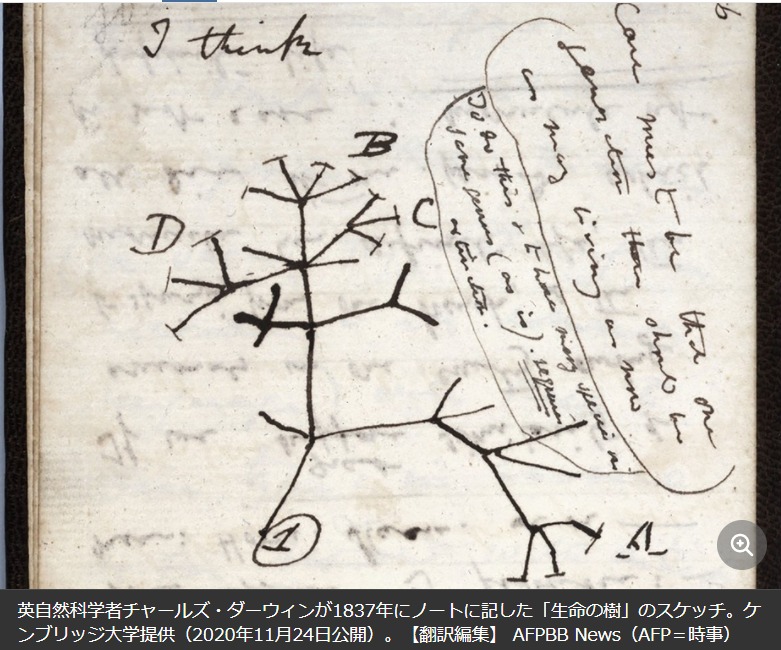 I think
Case must be that one
generation then should be
as many living as now
To do this & to have many species in
same genus (as is). requires
extinction.
B
C
D
A
1
英自然科学者チャールズ・ダーウィンが1837年にノートに記した「生命の樹」のスケッチ。ケ
ンブリッジ大学提供（2020年11月24日公開）。【翻訳編集】 AFPBB News（AFP＝時事）